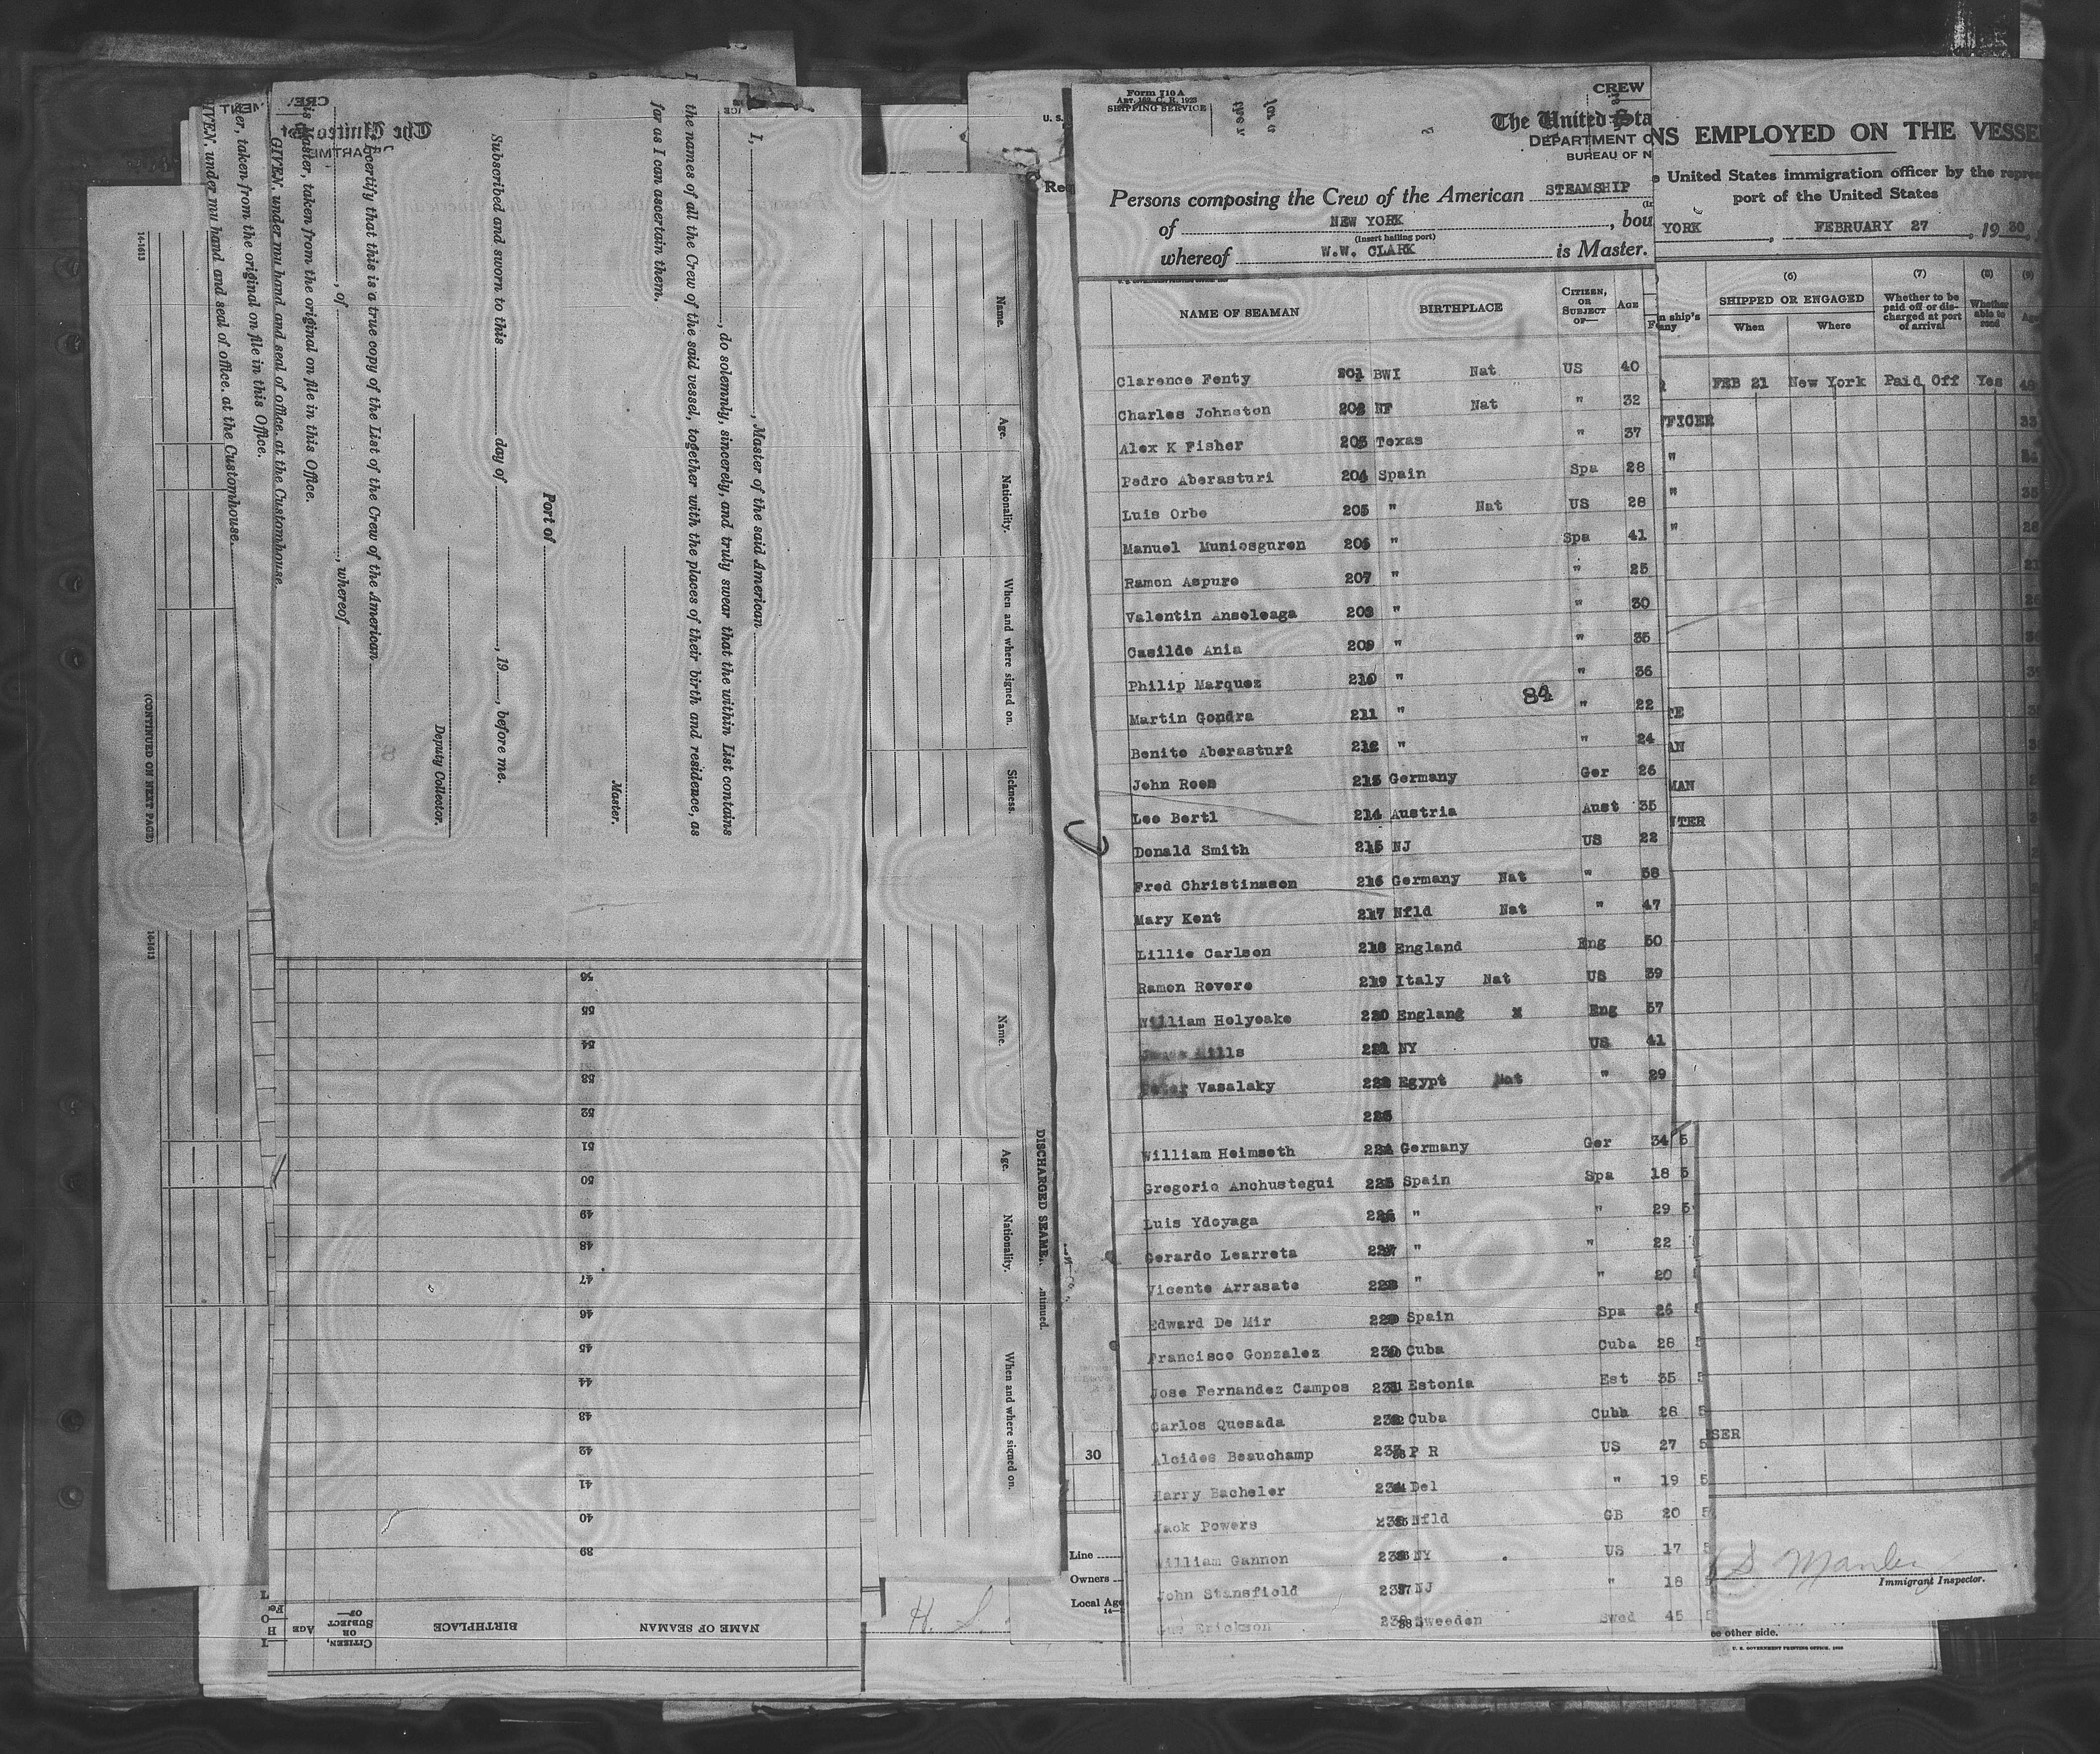 14-1613
(CONTINUED ON NEXT PAGE)
14-1613
GIVEN under my hand and seal of office, at the Customhouse,
taken from the original on file in this Office.
GIVEN under my hand and seal of office, at the Customhouse,
Master, taken from the original on file in this Office.
, of , whereof
certify that this is a true copy of the List of the Crew of the American
Deputy Collector.
Subscribed and sworn to this day of , 19 , before me.
Port of
Master.
far as I can ascertain them.
the names of all the Crew of the said vessel, together with the places of their birth and residence, as
, do solemnly, sincerely, and truly swear that the within List contains
I, , Master of the said American
56
55
54
53
52
51
50
49
48
47
46
45
44
43
42
41
40
39
NAME OF SEAMAN
BIRTHPLACE
CITIZEN, OR SUBJECT OF—
AGE
Name.
Age.
Nationality.
When and where signed on.
Sickness.
Name.
Age.
Nationality.
When and where signed on.
DISCHARGED SEAMEN
30
Line
Owners
Local Age
H. S.
Form 710 A
ART. 162, C. R. 1923
SHIPPING SERVICE
CREW
The United Sta
DEPARTMENT O
BUREAU OF N
Persons composing the Crew of the American STEAMSHIP
of NEW YORK , bou
(Insert hailing port)
whereof W.W. CLARK is Master.
NAME OF SEAMAN BIRTHPLACE CITIZEN, OR SUBJECT OF— AGE
Clarence Fenty 201 BWI Nat US 40
Charles Johnston 202 NF Nat " 32
Alex K Fisher 203 Texas " 37
Pedro Aberasturi 204 Spain Spa 28
Luis Orbe 205 " Nat US 28
Manuel Muniosguren 206 " Spa 41
Ramon Aspuro 207 " " 25
Valentin Ansoleaga 208 " " 30
Casilde Ania 209 " " 35
Philip Marquez 210 " " 36
84
Martin Gondra 211 " " 22
Benito Aberasturi 212 " " 24
John Roos 213 Germany Ger 26
Leo Bertl 214 Austria Aust 35
Donald Smith 215 NJ US 22
Fred Christinason 216 Germany Nat " 58
Mary Kent 217 Nfld Nat " 47
Lillie Carlson 218 England Eng 50
Ramon Rovere 219 Italy Nat US 39
William Holyoake 220 England X Eng 57
Mills 221 NY US 41
Peter Vasalaky 222 Egypt Nat " 29
223
William Heimsoth 224 Germany Ger 34 5
Gregorio Anchustegui 225 Spain Spa 18 5
Luis Ydoyaga 226 " " 29 5
Gerardo Learreta 227 " " 22
Vicente Arrasate 228 " " 20
Edward De Mir 229 Spain Spa 26
Francisco Gonzalez 230 Cuba Cuba 28
Jose Fernandez Campos 231 Estonia Est 35
Carlos Quesada 232 Cuba Cuba 28 5
Alcides Beauchamp 233 P R US 27 5
Harry Bacheler 234 Del " 19 5
Jack Powers 235 Nfld GB 20 5
William Gannon 236 NY US 17 5
John Stansfield 237 NJ " 18
Gus Erickson 238 Sweeden Swed 45 5
NS EMPLOYED ON THE VESSE
United States immigration officer by the repres
port of the United States
YORK , FEBRUARY 27 , 19 30
(6) (7) (8) (9)
SHIPPED OR ENGAGED
When Where
Whether to be paid off or discharged at port of arrival
Whether able to read
FEB 21 New York Paid Off Yes 48
FFICER
"
"
"
AN
MAN
NTER
SER
Immigrant Inspector.
other side.
U. S. GOVERNMENT PRINTING OFFICE